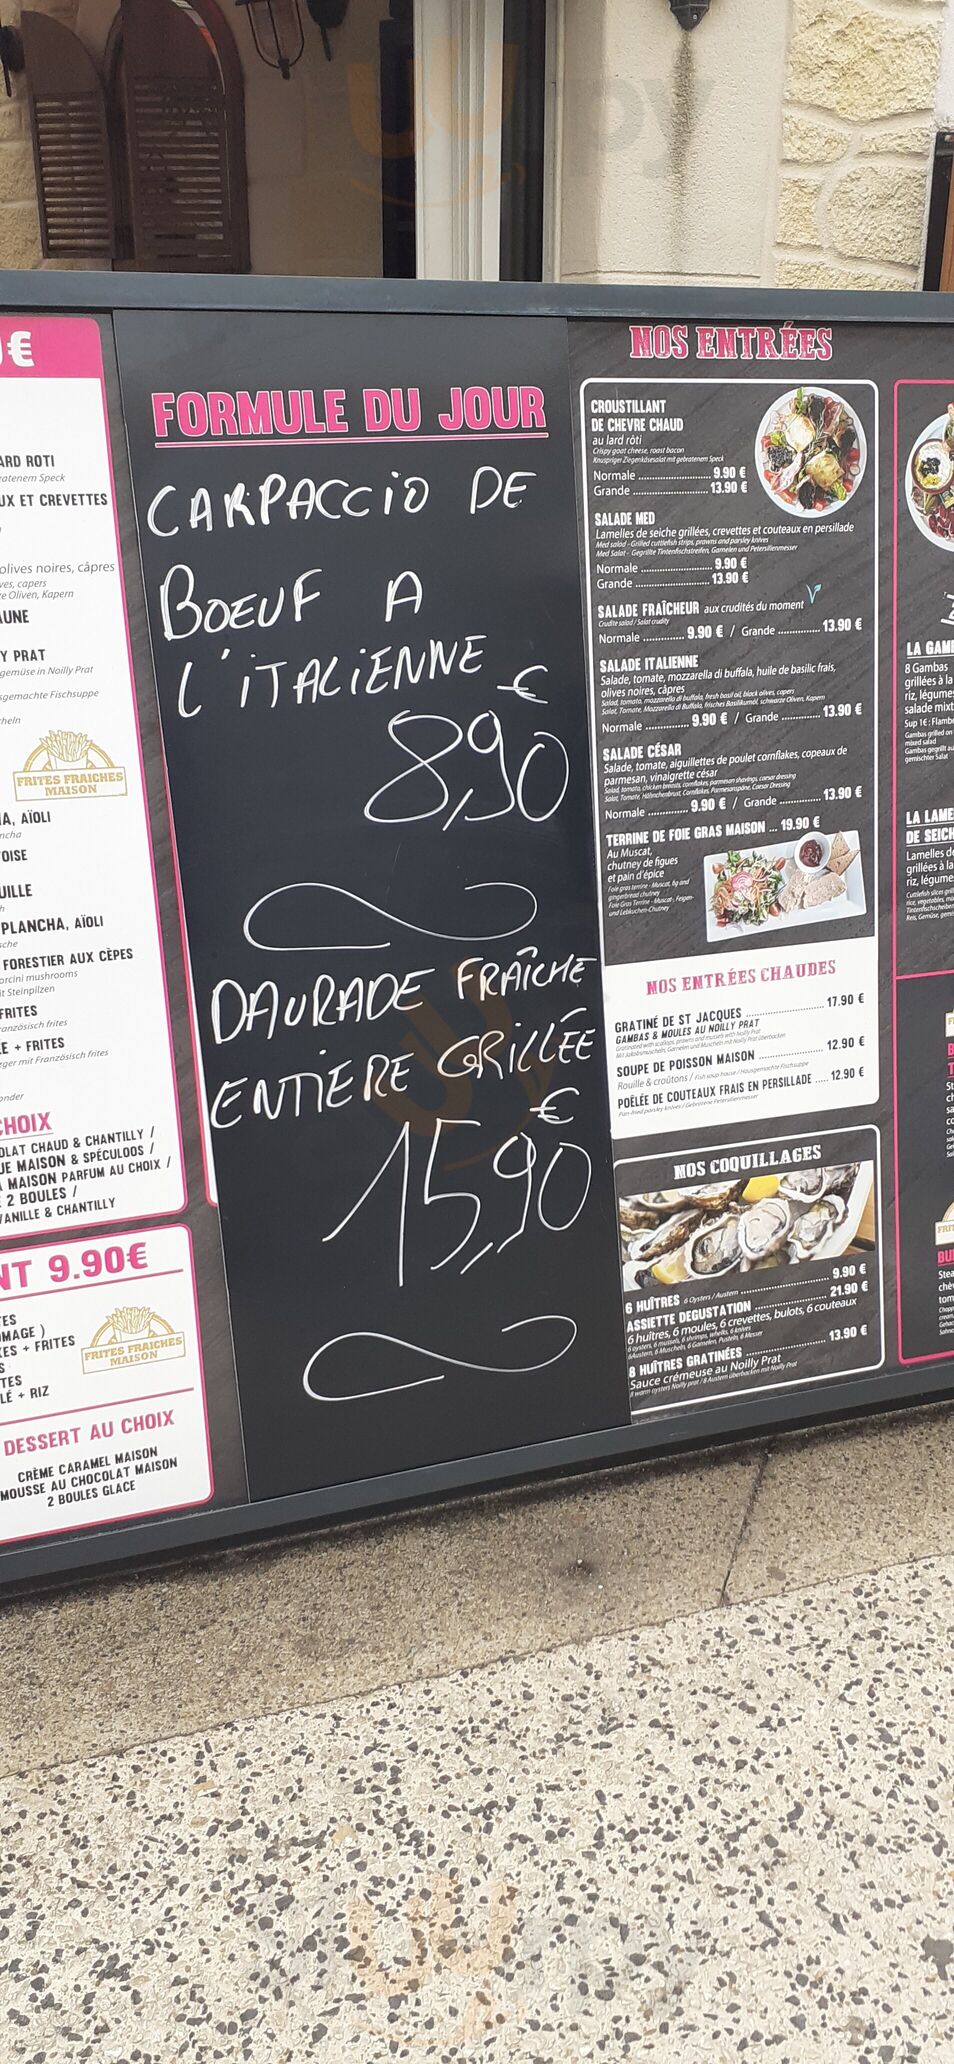 €
ARD ROTI
ratenem Speck
UX ET CREVETTES
olives noires, câpres
ves, capers
re Oliven, Kapern
AUNE
Y PRAT
gemüse in Noilly Prat
sgemachte Fischsuppe
cheln
FRITES FRAICHES
MAISON
A, AÏOLI
ncha
OISE
UILLE
PLANCHA, AÏOLI
sche
FORESTIER AUX CÈPES
orcini mushrooms
it Steinpilzen
FRITES
ranzösisch frites
E + FRITES
rger mit Französisch frites
onder
CHOIX
OLAT CHAUD & CHANTILLY /
UE MAISON & SPÉCULOOS /
MAISON PARFUM AU CHOIX /
2 BOULES /
VANILLE & CHANTILLY
NT 9.90€
TES
OMAGE )
ES + FRITES
S
TES
LÉ + RIZ
FRITES FRAICHES
MAISON
DESSERT AU CHOIX
CRÈME CARAMEL MAISON
MOUSSE AU CHOCOLAT MAISON
2 BOULES GLACE
FORMULE DU JOUR
CARPACCIO DE
BOEUF A
L'ITALIENNE
€
8,90
DAURADE FRAÎCHE
ENTIERE GRILLÉE
€
15,90
NOS ENTRÉES
CROUSTILLANT
DE CHEVRE CHAUD
au lard rôti
Crispy goat cheese, roast bacon
Knuspriger Ziegenkäsesalat mit gebratenem Speck
Normale ........................ 9.90 €
Grande ........................ 13.90 €
SALADE MED
Lamelles de seiche grillées, crevettes et couteaux en persillade
Med salad - Grilled cuttlefish strips, prawns and parsley knives
Med Salat - Gegrillte Tintenfischstreifen, Garnelen und Petersilienmesser
Normale ........................ 9.90 €
Grande ........................ 13.90 €
SALADE FRAÎCHEUR aux crudités du moment
Crudite salad / Salat crudity
Normale ............. 9.90 € / Grande ............. 13.90 €
SALADE ITALIENNE
Salade, tomate, mozzarella di buffala, huile de basilic frais,
olives noires, câpres
Salad, tomato, mozzarella di buffala, fresh basil oil, black olives, capers
Salat, Tomate, Mozzarella di Buffala, frisches Basilikumöl, schwarze Oliven, Kapern
Normale ............. 9.90 € / Grande ............. 13.90 €
SALADE CÉSAR
Salade, tomate, aiguillettes de poulet cornflakes, copeaux de
parmesan, vinaigrette césar
Salad, tomato, chicken breasts, cornflakes, parmesan shavings, caesar dressing
Salat, Tomate, Hähnchenbrust, Cornflakes, Parmesanspäne, Caesar Dressing
Normale ............. 9.90 € / Grande ............. 13.90 €
TERRINE DE FOIE GRAS MAISON ... 19.90 €
Au Muscat,
chutney de figues
et pain d'épice
Foie gras terrine - Muscat, fig and
gingerbread chutney
Foie Gras Terrine - Muscat-, Feigen-
und Lebkuchen-Chutney
NOS ENTRÉES CHAUDES
GRATINÉ DE ST JACQUES ..................... 17.90 €
GAMBAS & MOULES AU NOILLY PRAT
SOUPE DE POISSON MAISON ................. 12.90 €
Rouille & croûtons / Fish soup house / Hausgemachte Fischsuppe
POÊLÉE DE COUTEAUX FRAIS EN PERSILLADE ..... 12.90 €
Pan-fried parsley knives / Gebratene Petersilienmesser
NOS COQUILLAGES
6 HUÎTRES 6 Oysters / Austern ..................... 9.90 €
ASSIETTE DEGUSTATION ..................... 21.90 €
6 huîtres, 6 moules, 6 crevettes, bulots, 6 couteaux
8 HUÎTRES GRATINÉES ..................... 13.90 €
Sauce crémeuse au Noilly Prat
LA GAM
8 Gambas
grillées à la
riz, légume
salade mixt
Sup 1€ : Flamb
Gambas grilled on
mixed salad
gemischter Salat
LA LAME
DE SEICH
Lamelles de
grillées à la
riz, légume